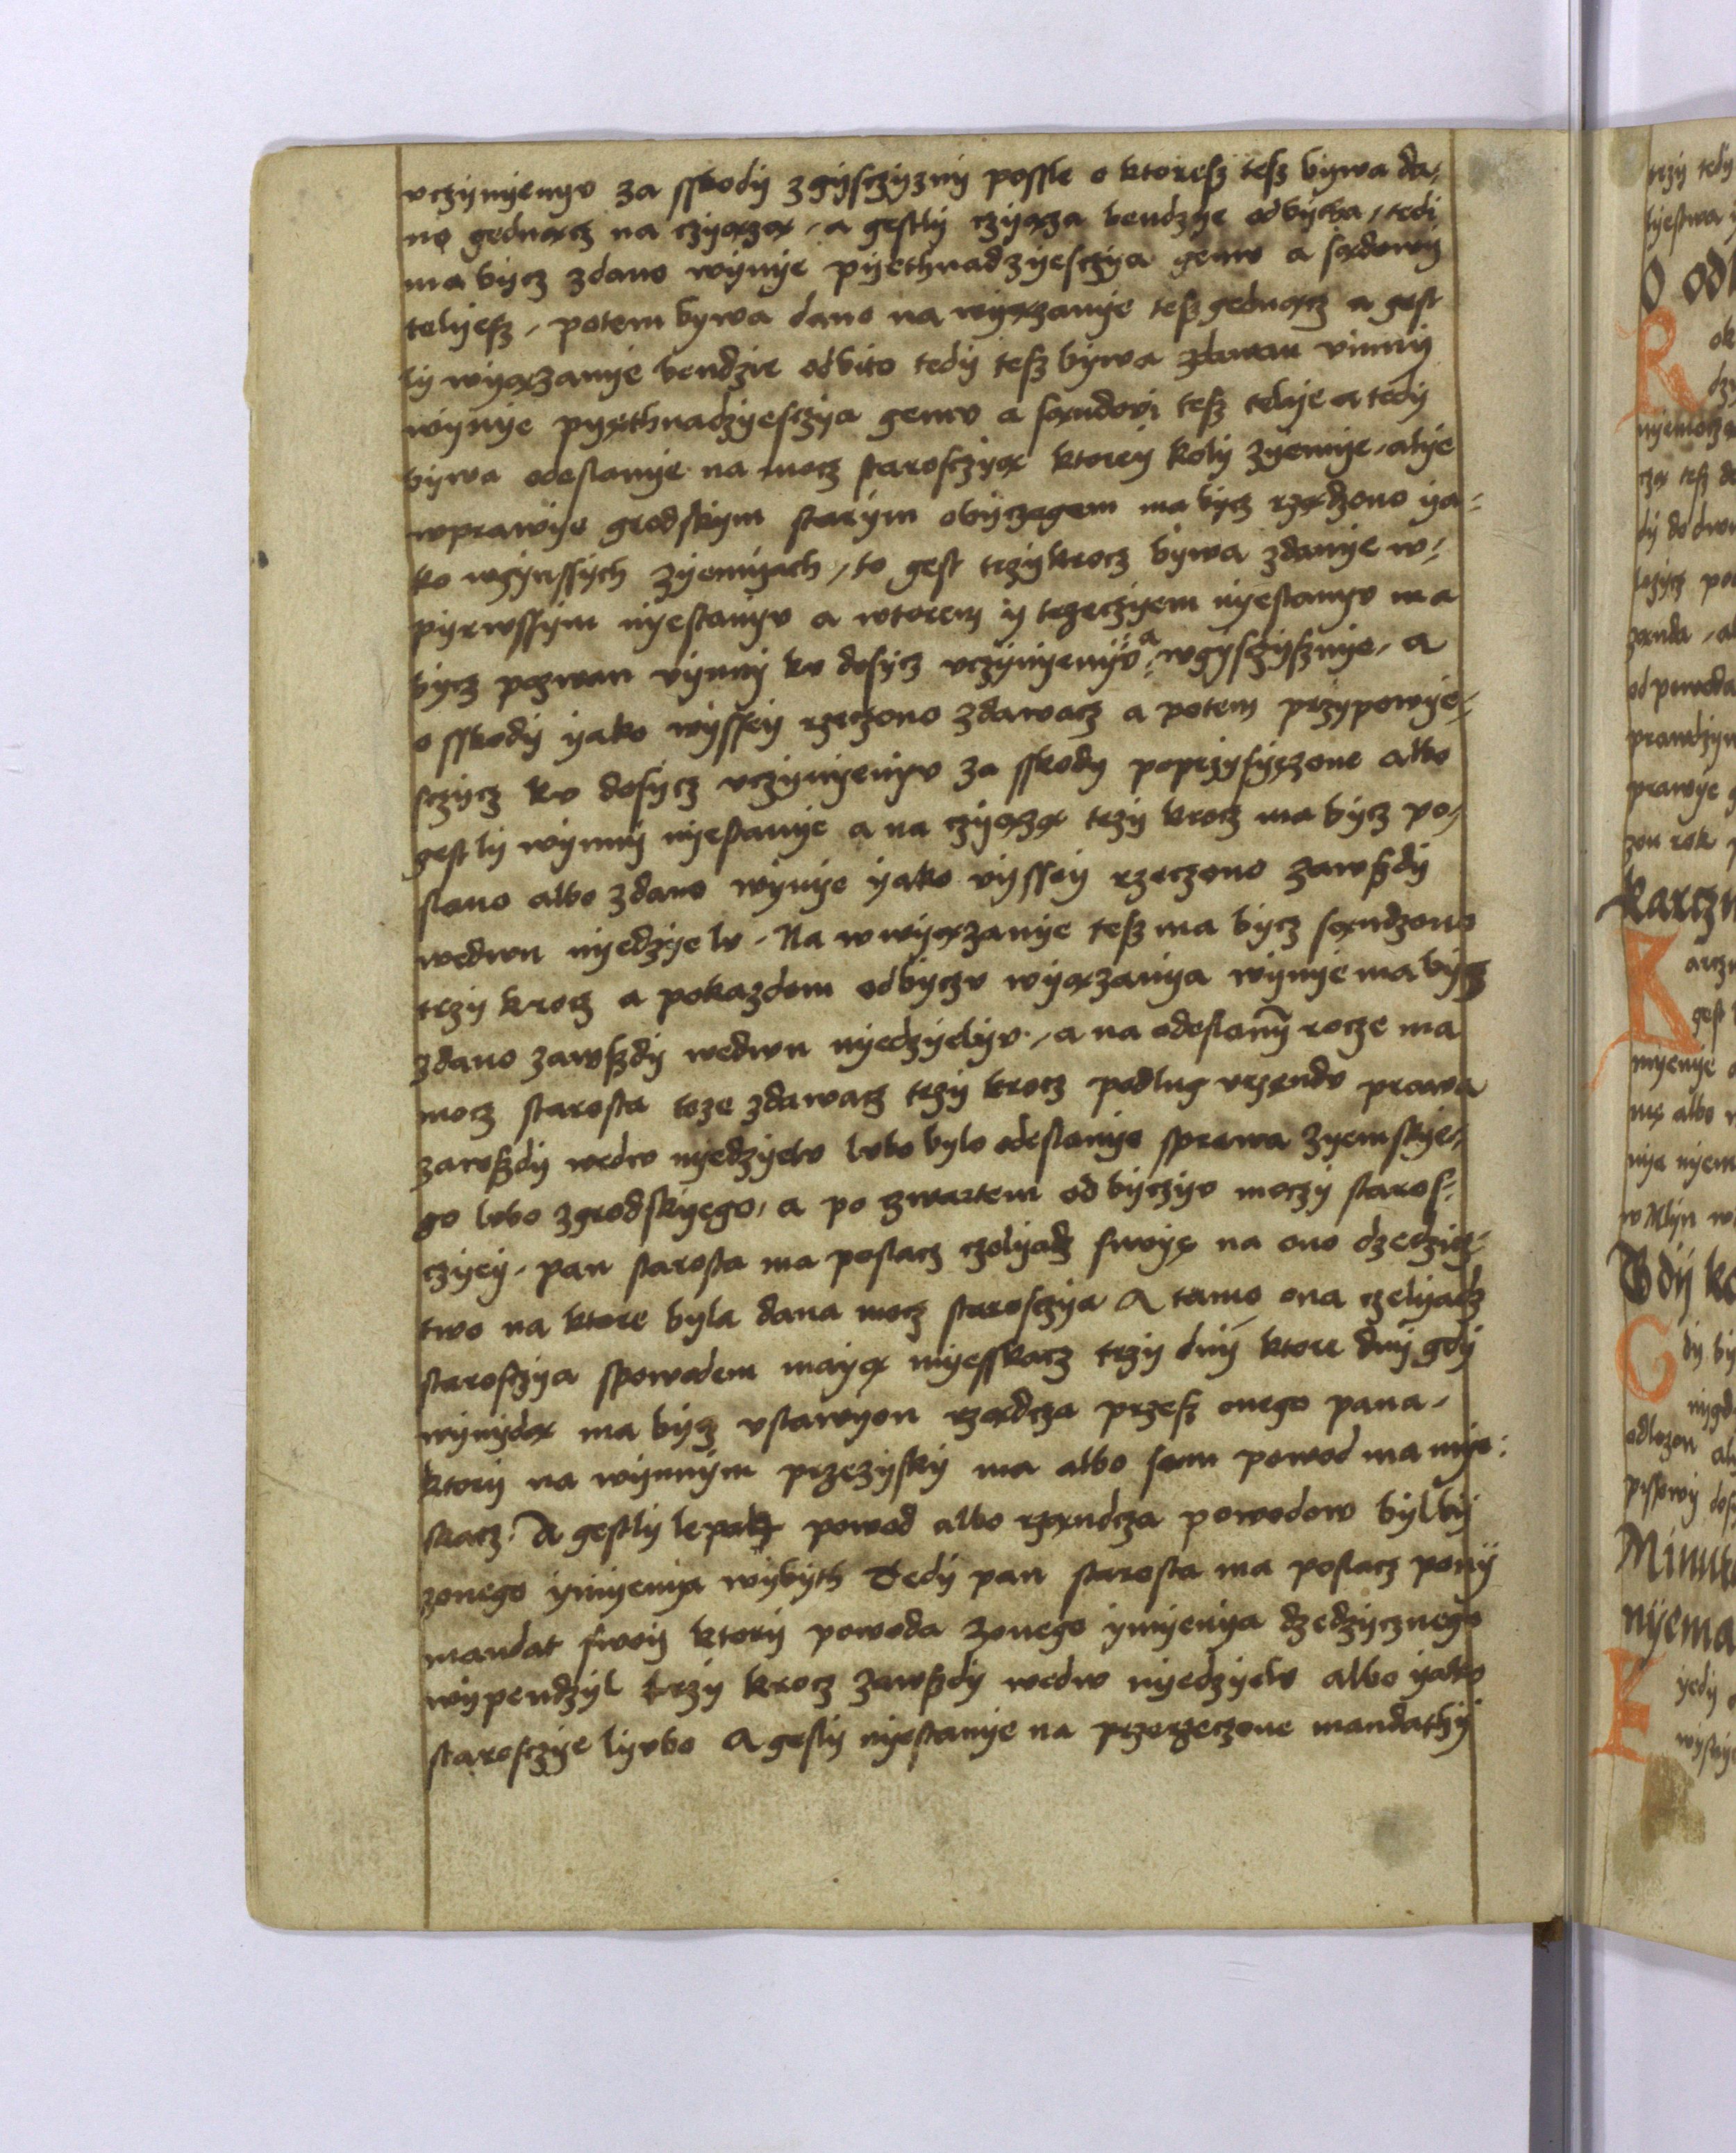 vczynyenyv za sskody zgysczyzny possle o ktoresz tesz bywa da-
no gednącz na czyąząą, a gestly czyąza bendzye odbytha, tedi
ma bycz zdano wynye pyethnadzyesczya gemv a sądowy
telyesz, potem bywa dano na wyązanye tesz gednącz a gest
ly wyązanye bendzie odbito tedy tesz bywa zdawan vinny
wynye pyąthnadzyesczya gemv a sąndovi tesz telye a tedy
bywa odeslanye na mocz starosczyą ktorey koly zyemye, alye
wprawye grodskym starym obyczagem ma bycz rządzono ya-
ko wgynssych zyemyach, to gest trzykrocz bywa zdanye w-
pyrwssym nyestanyv a wtorem y trzeczyem nyestanyv ma
bycz pozwan vynny kv dosycz vczynyenyv a wgysczysznye, a
o sskody yako wyssey rzeczono zdawacz a potem przypowye-
sczycz kv dosycz vczynyenyv za sskody poprzysyęzone albo
gestly wynny nyestanye a na czyązą trzy krocz ma bycz po-
slano albo zdano wynye yako vyssey rzeczono zawszdy
wedwu nyedzyelv. Na wwyązanye tesz ma bycz sąndzono
trzy krocz a pokazdem odbyczv wyązanya wynye ma bycz
zdano zawszdy wedwu nyedzyelyv, a na odeslany rocze ma
mocz starosta toze zdawacz trzy krocz podlug vrzendv prawa
zawszdy wedw nyedzyelv lvbo bylo odeslanye sprawa zyemskye-
go lvbo zgrodskyego, a po czwartem odbyczyv moczy staros-
czyey, pan starosta ma poslacz czelyadz swoyę na ono dzedzicz-
two na ktore byla dana mocz starosczya A tamo ona czelyadz
starosczya spowodem mayą myesskacz trzy dny ktore dny gdy
wynydą ma bycz vstawyon rządcza przesz onego pana,
ktory na wynnym przezysky ma albo sam powod ma mye-
skacz. A gestly lepak powod albo rząndcza powodow bylby
zonego ymyenya wybyth Tedy pan starosta ma poslacz pony
mandat swoy ktory powoda zonego ymyenya dzedzycznego
wypendzyl trzy krocz zawszdy wedw nyedzyelv albo yako
starosczye lyvbo A gesly nyestanye na przerzeczone mandathy